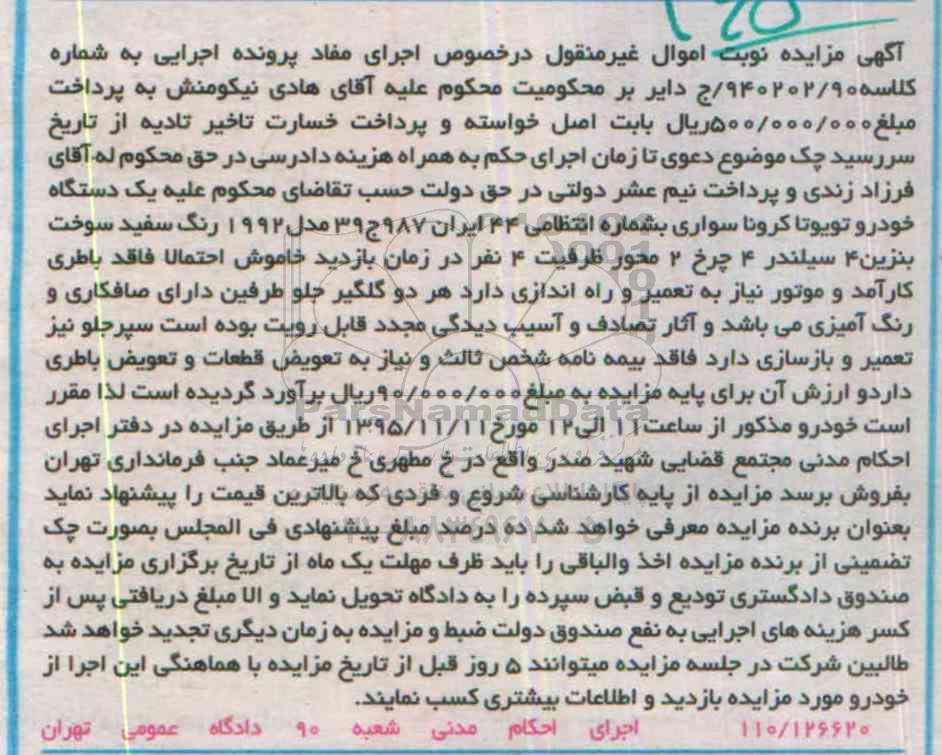 ۱۲۵
آگهی مزایده نوبت اموال غیرمنقول درخصوص اجرای مفاد پرونده اجرایی به شماره
کلاسه۹۴۰۲۰۲/۹۰/ج دایر بر محکومیت محکوم علیه آقای هادی نیکومنش به پرداخت
مبلغ۵۰۰/۰۰۰/۰۰۰ریال بابت اصل خواسته و پرداخت خسارت تاخیر تادیه از تاریخ
سررسید چک موضوع دعوی تا زمان اجرای حکم به همراه هزینه دادرسی در حق محکوم له آقای
فرزاد زندی و پرداخت نیم عشر دولتی در حق دولت حسب تقاضای محکوم علیه یک دستگاه
خودرو تویوتا کرونا سواری بشماره انتظامی ۴۴ ایران ۹۸۷ج۳۹ مدل۱۹۹۲ رنگ سفید سوخت
بنزین۴ سیلندر ۴ چرخ ۲ محور ظرفیت ۴ نفر در زمان بازدید خاموش احتمالا فاقد باطری
کارآمد و موتور نیاز به تعمیر و راه اندازی دارد هر دو گلگیر جلو طرفین دارای صافکاری و
رنگ آمیزی می باشد و آثار تصادف و آسیب دیدگی مجدد قابل رویت بوده است سپرجلو نیز
تعمیر و بازسازی دارد فاقد بیمه نامه شخص ثالث و نیاز به تعویض قطعات و تعویض باطری
داردو ارزش آن برای پایه مزایده به مبلغ۹۰/۰۰۰/۰۰۰ریال برآورد گردیده است لذا مقرر
است خودرو مذکور از ساعت۱۱ الی۱۲ مورخ۱۳۹۵/۱۱/۱۱ از طریق مزایده در دفتر اجرای
احکام مدنی مجتمع قضایی شهید صدر واقع در خ مطهری خ میرعماد جنب فرمانداری تهران
بفروش برسد مزایده از پایه کارشناسی شروع و فردی که بالاترین قیمت را پیشنهاد نماید
بعنوان برنده مزایده معرفی خواهد شد ده درصد مبلغ پیشنهادی فی المجلس بصورت چک
تضمینی از برنده مزایده اخذ والباقی را باید ظرف مهلت یک ماه از تاریخ برگزاری مزایده به
صندوق دادگستری تودیع و قبض سپرده را به دادگاه تحویل نماید و الا مبلغ دریافتی پس از
کسر هزینه های اجرایی به نفع صندوق دولت ضبط و مزایده به زمان دیگری تجدید خواهد شد
طالبین شرکت در جلسه مزایده میتوانند ۵ روز قبل از تاریخ مزایده با هماهنگی این اجرا از
خودرو مورد مزایده بازدید و اطلاعات بیشتری کسب نمایند.
۱۱۰/۱۲۶۶۲۰ اجرای احکام مدنی شعبه ۹۰ دادگاه عمومی تهران
ParsNamadData